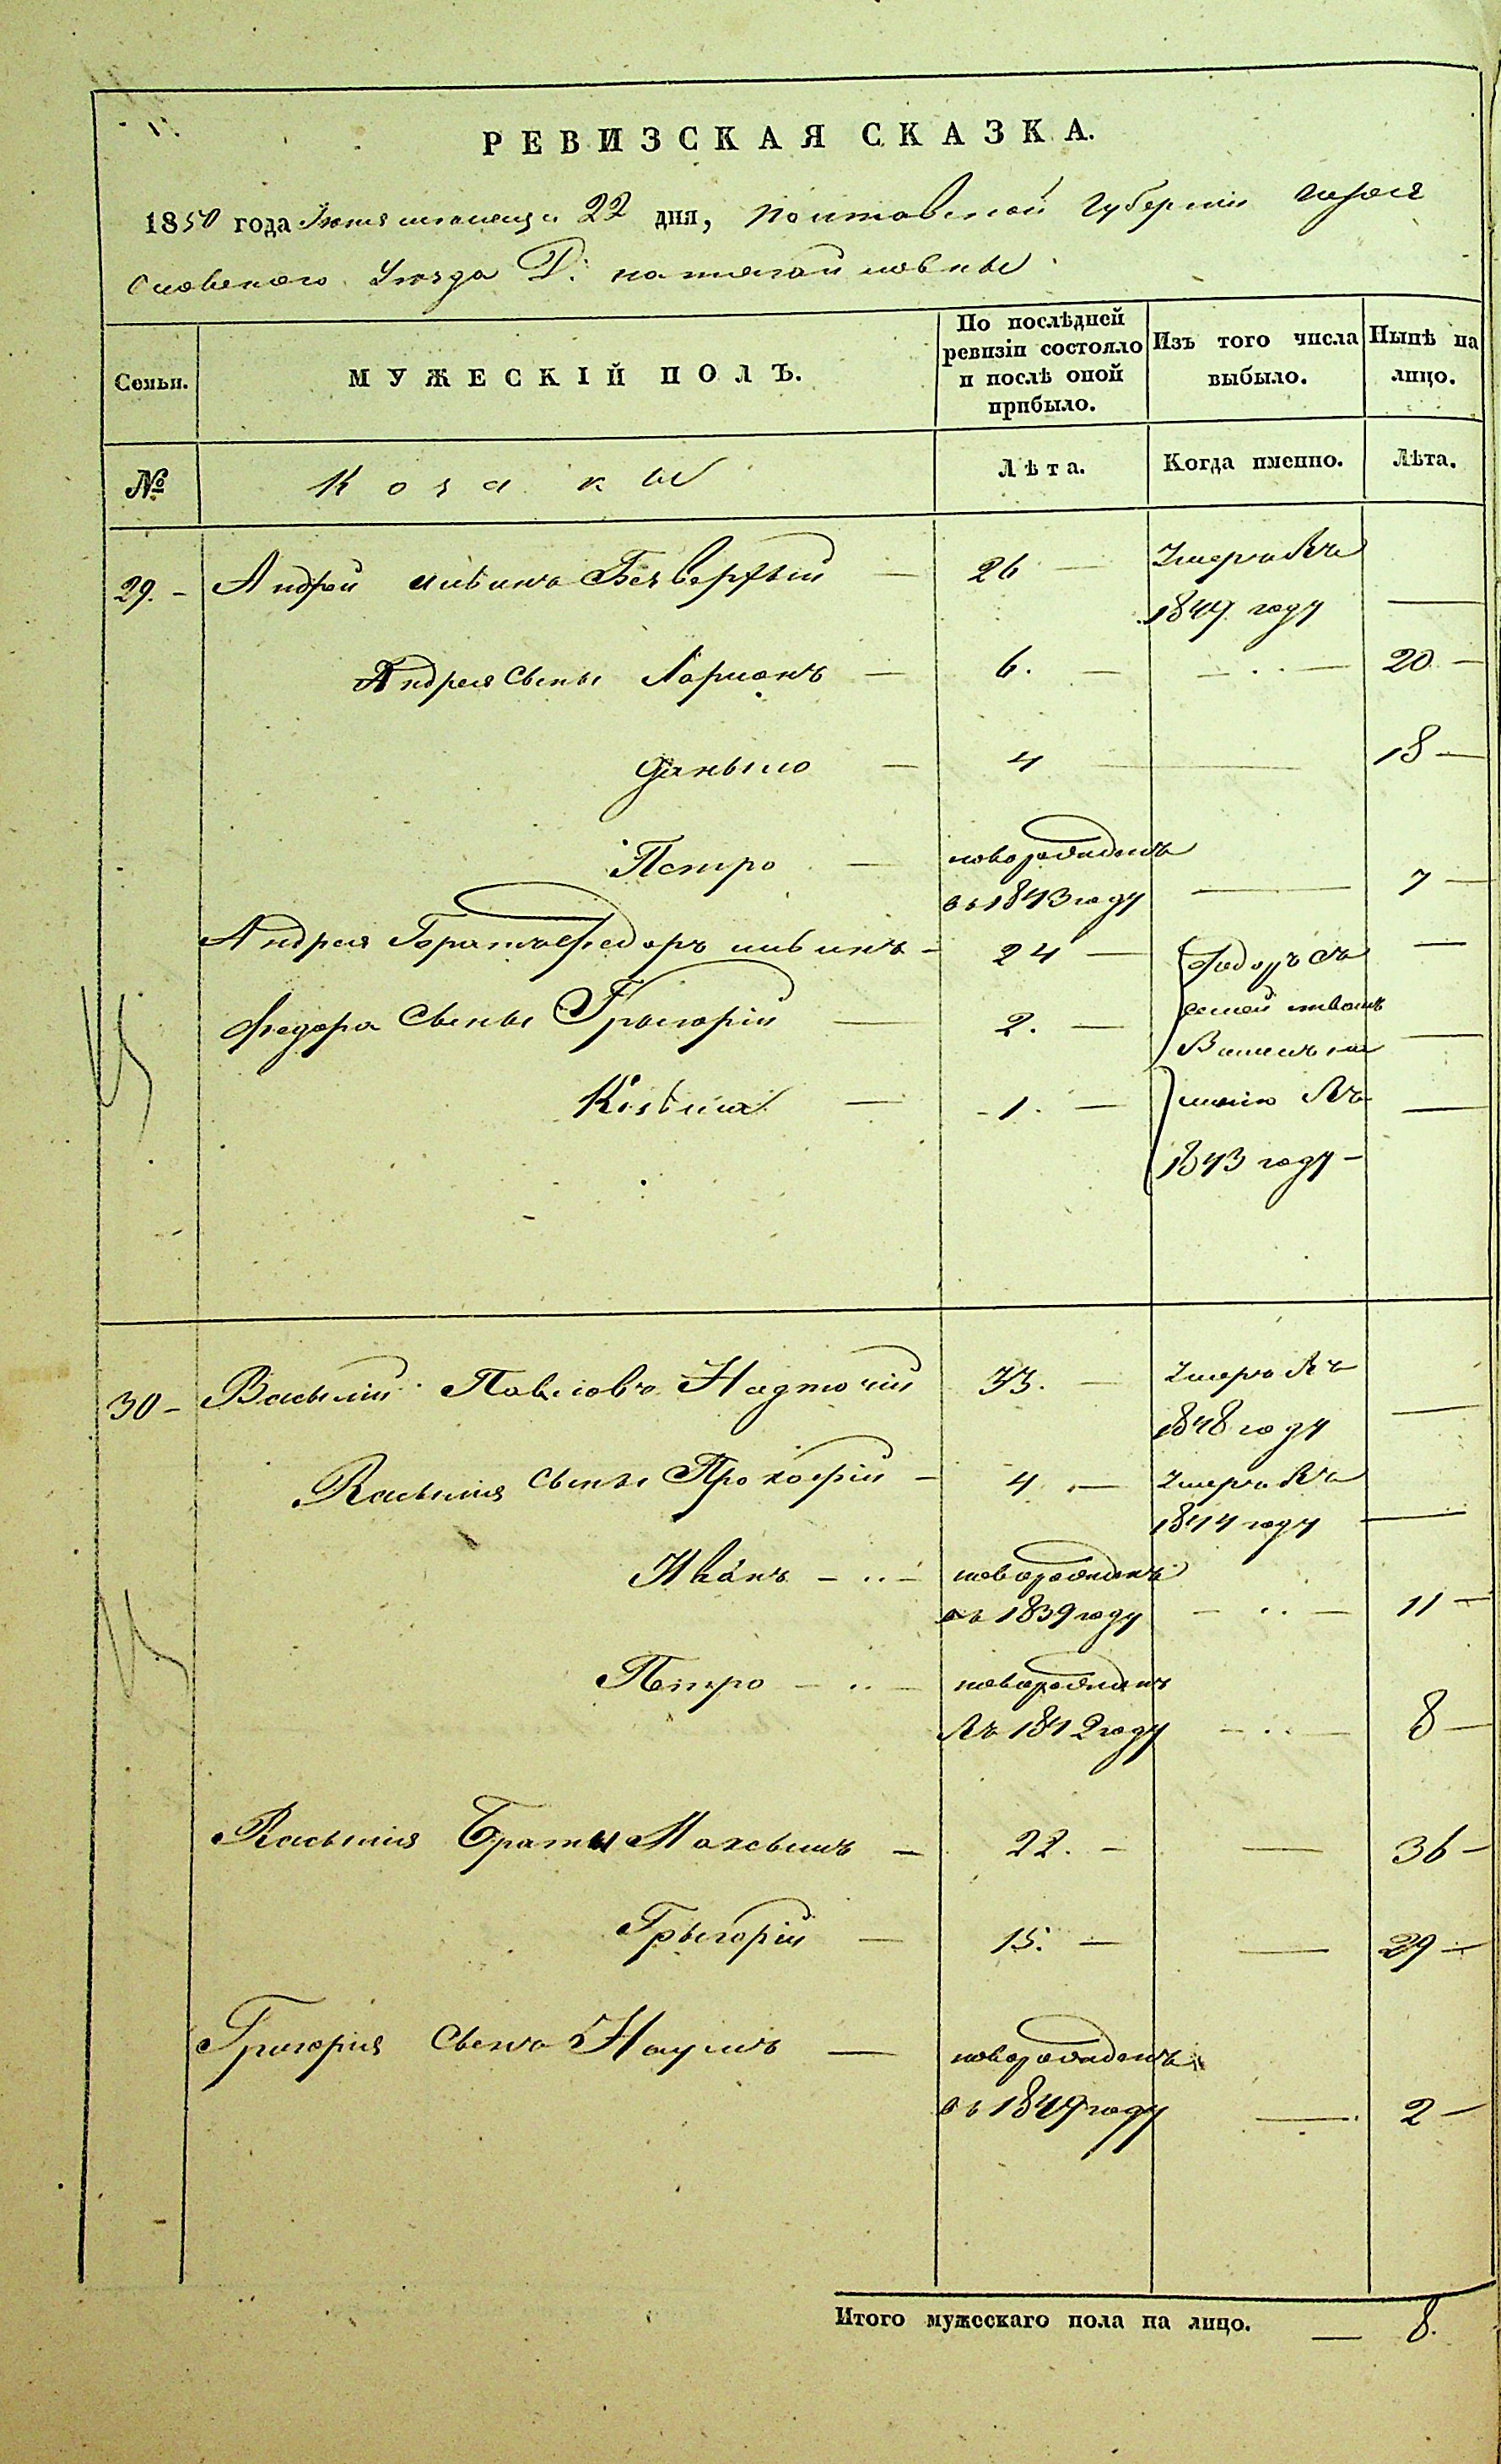 РЕВИЗСКАЯ СКАЗКА.
1850 года Июня месяца 22 дня, Полтавской Губернии
Уезда Д:
Семьи. МУЖЕСКІЙ ПОЛЪ. По послѣдней ревизіи состояло и послѣ оной прибыло. Изъ того числа выбыло. Нынѣ на лицо.
№ Козакы Лѣта. Когда именно. Лѣта.
29. Андрей Безверхый 26 Умеръ Въ
1849 году
Андрея сыны Ларионъ 6. 20
Даныло 4 18
Петро новорожденъ
въ 1843 году 7
Андрея Братъ Федоръ 24 Федоръ съ
Федора сыны Грыгорій 2. семей
1. Въ
1843 году
30 Васылій Павловъ Надточій 33. Умеръ Въ
1848 году
Васылія сыны Прокофій 4 Умеръ Въ
1844 году
Иванъ новорожденъ
въ 1839 году 11
Петро новорожденъ
Въ 1842 году 8
Васылія Браты Максымъ 22. 36
Грыгорій 15. 29
Григорія сынъ Наумъ новорожденъ
въ 1849 году 2
Итого мужескаго пола на лицо. 8.